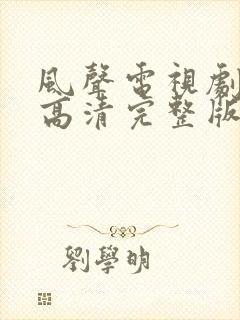 風聲電視劇
高清完整版
劉學明